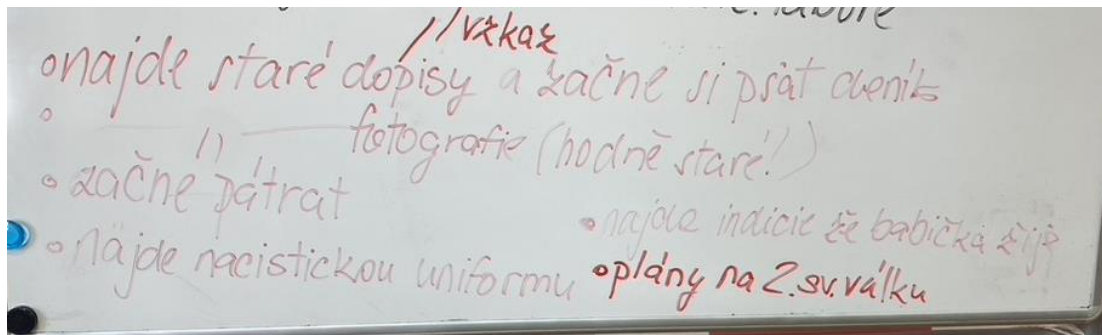 //vzkaz
najde staré dopisy a začne si psát deník
—— 11 —— fotografie (hodně staré!)
začne pátrat
najde indicie že babička žije
najde nacistickou uniformu
plány na 2. sv. válku